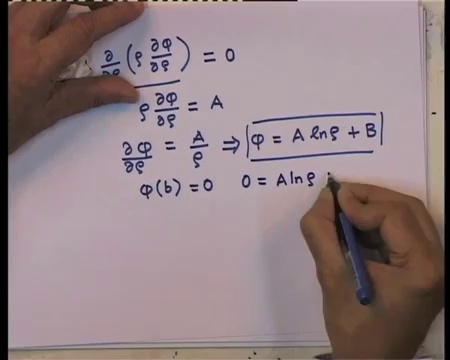 ∂/∂ρ (ρ ∂φ/∂ρ) = 0
ρ ∂φ/∂ρ = A
∂φ/∂ρ = A/ρ ⇒ φ = A lnρ + B
φ(b) = 0   0 = A lnρ